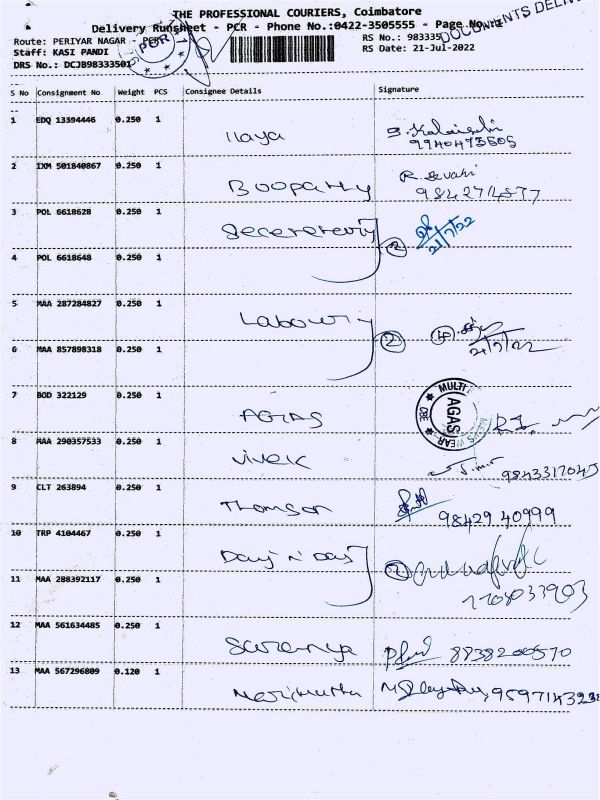 THE PROFESSIONAL COURIERS, Coimbatore
Delivery Runsheet - PCR - Phone No.:0422-3505555 - Page No.:1
DOCUMENTS
Route: PERIYAR NAGAR - PCR
RS No.: 983335
Staff: KASI PANDI
RS Date: 21-Jul-2022
DRS No.: DCJB98333501
S No Consignment No Weight PCS Consignee Details Signature
1 EDQ 13394446 0.250 1 Ilaya
2 IXM 501840867 0.250 1 Boopathy R. Revathi
3 POL 6618628 0.250 1 Secereteriy 2 21/7/22
4 POL 6618648 0.250 1
5 MAA 287284827 0.250 1 Labowry 2 21/7/22
6 MAA 857898318 0.250 1
7 BOD 322129 0.250 1 AGIAS MULTI AGAS WEAR CBE
8 MAA 290357533 0.250 1 Vivek 9843317045
9 CLT 263894 0.250 1 Thomson 98429 40999
10 TRP 4104467 0.250 1 Day n Day 2
11 MAA 288392117 0.250 1
12 MAA 561634485 0.250 1 Saranya
13 MAA 567296809 0.120 1 Marimuthu